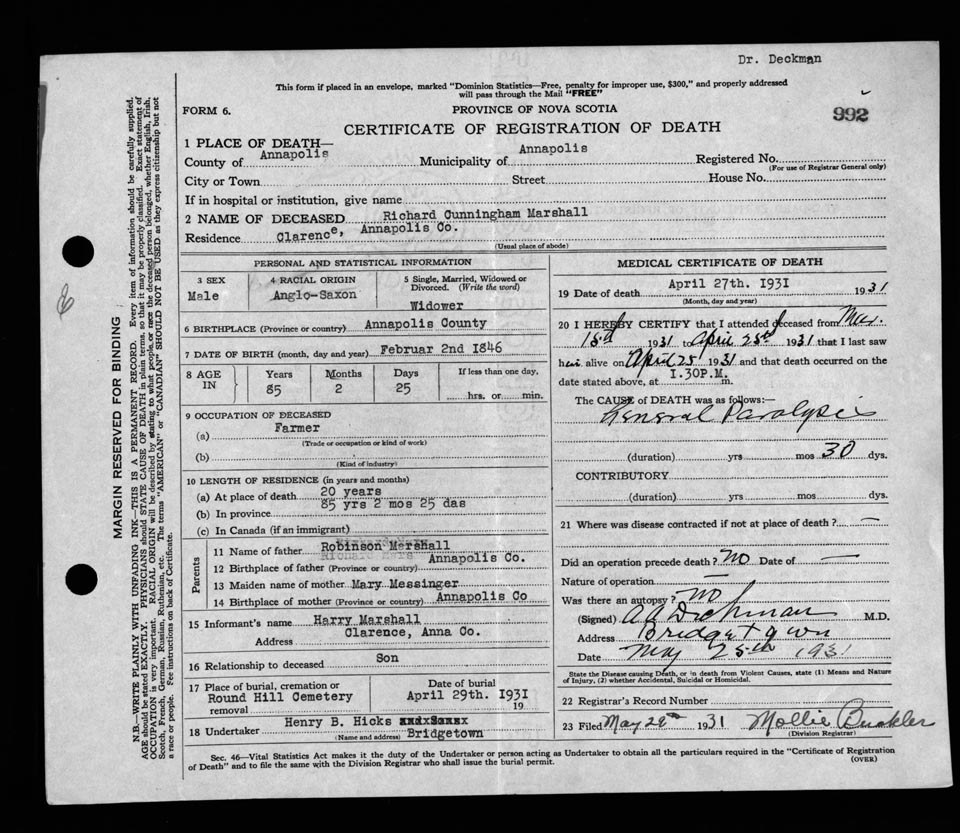 Dr. Deckman
This form if placed in an envelope, marked "Dominion Statistics—Free, penalty for improper use, $300," and properly addressed
will pass through the Mail "FREE"
FORM 6.
PROVINCE OF NOVA SCOTIA
992
CERTIFICATE OF REGISTRATION OF DEATH
1 PLACE OF DEATH—
County of Annapolis Municipality of Annapolis Registered No.
(For use of Registrar General only)
City or Town Street House No.
If in hospital or institution, give name
2 NAME OF DECEASED Richard Cunningham Marshall
Residence Clarence, Annapolis Co.
(Usual place of abode)
PERSONAL AND STATISTICAL INFORMATION
3 SEX 4 RACIAL ORIGIN 5 Single, Married, Widowed or
Divorced. (Write the word)
Male Anglo-Saxon Widower
6 BIRTHPLACE (Province or country) Annapolis County
7 DATE OF BIRTH (month, day and year) Februar 2nd 1846
8 AGE IN Years Months Days If less than one day,
85 2 25 hrs. or min.
9 OCCUPATION OF DECEASED
(a) Farmer
(Trade or occupation or kind of work)
(b)
(Kind of industry)
10 LENGTH OF RESIDENCE (in years and months)
(a) At place of death 20 years
(b) In province 85 yrs 2 mos 25 das
(c) In Canada (if an immigrant)
Parents
11 Name of father Robinson Marshall
12 Birthplace of father (Province or country) Annapolis Co.
13 Maiden name of mother Mary Messinger
14 Birthplace of mother (Province or country) Annapolis Co
15 Informant's name Harry Marshall
Address Clarence, Anna Co.
16 Relationship to deceased Son
17 Place of burial, cremation or Date of burial
Round Hill Cemetery April 29th. 1931
removal 19
18 Undertaker Henry B. Hicks
(Name and address) Bridgetown
MEDICAL CERTIFICATE OF DEATH
19 Date of death April 27th. 1931 1931
(Month, day and year)
20 I HEREBY CERTIFY that I attended deceased from Mar.
18th 1931 to April 25th 1931 that I last saw
him alive on April 25 1931 and that death occurred on the
date stated above, at 1.30P.M. m.
The CAUSE of DEATH was as follows:—
General Paralysis
(duration) yrs mos 30 dys.
CONTRIBUTORY
(duration) yrs mos dys.
21 Where was disease contracted if not at place of death? —
Did an operation precede death? No Date of —
Nature of operation —
Was there an autopsy? No
(Signed) A A Dechman M.D.
Address Bridgetown
Date May 25th 1931
State the Disease causing Death, or in death from Violent Causes, state (1) Means and Nature
of Injury, (2) whether Accidental, Suicidal or Homicidal.
22 Registrar's Record Number
23 Filed May 29th 1931 Mollie Buckler
(Division Registrar)
Sec. 46—Vital Statistics Act makes it the duty of the Undertaker or person acting as Undertaker to obtain all the particulars required in the "Certificate of Registration
of Death" and to file the same with the Division Registrar who shall issue the burial permit.
(OVER)
MARGIN RESERVED FOR BINDING
N.B.—WRITE PLAINLY WITH UNFADING INK—THIS IS A PERMANENT RECORD. Every item of information should be carefully supplied.
AGE should be stated EXACTLY. PHYSICIANS should STATE CAUSE OF DEATH in plain terms, so that it may be properly classified. Exact statement of
OCCUPATION is very important. RACIAL ORIGIN will be described by stating to what people or race the deceased person belonged, whether English, Irish,
Scotch, French, German, Russian, Ruthenian, etc. The terms "AMERICAN" or "CANADIAN" SHOULD NOT BE USED as they express citizenship but not
a race or people. See instructions on back of Certificate.